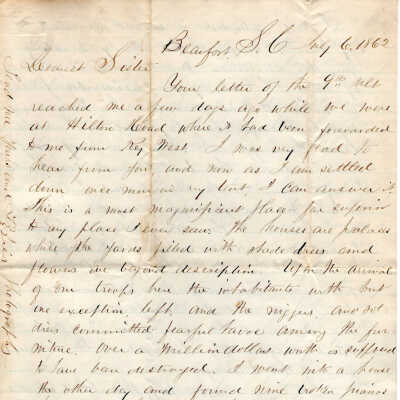 Beaufort S. C July 6, 1862
Dearest Sister
Your letter of the 9th ult
reached me a few days ago while we were
at Hilton Head where it had been forwarded
to me from Key West. I was very glad to
hear from you and now as I am settled
down once more in my tent I can answer it
This is a most magnificent place far superior
to any place I ever saw. The houses are palaces
while the yards filled with shade trees and
flowers are beyond description. Upon the arrival
of our troops here the inhabitants with but
one exception left and the niggers and sol
diers committed fearful havoc among the fur
niture. Over a million dollars worth is supposed
to have been destroyed. I went into a house
the other day and found nine broken pianos
Send me and Lizzies Photographs